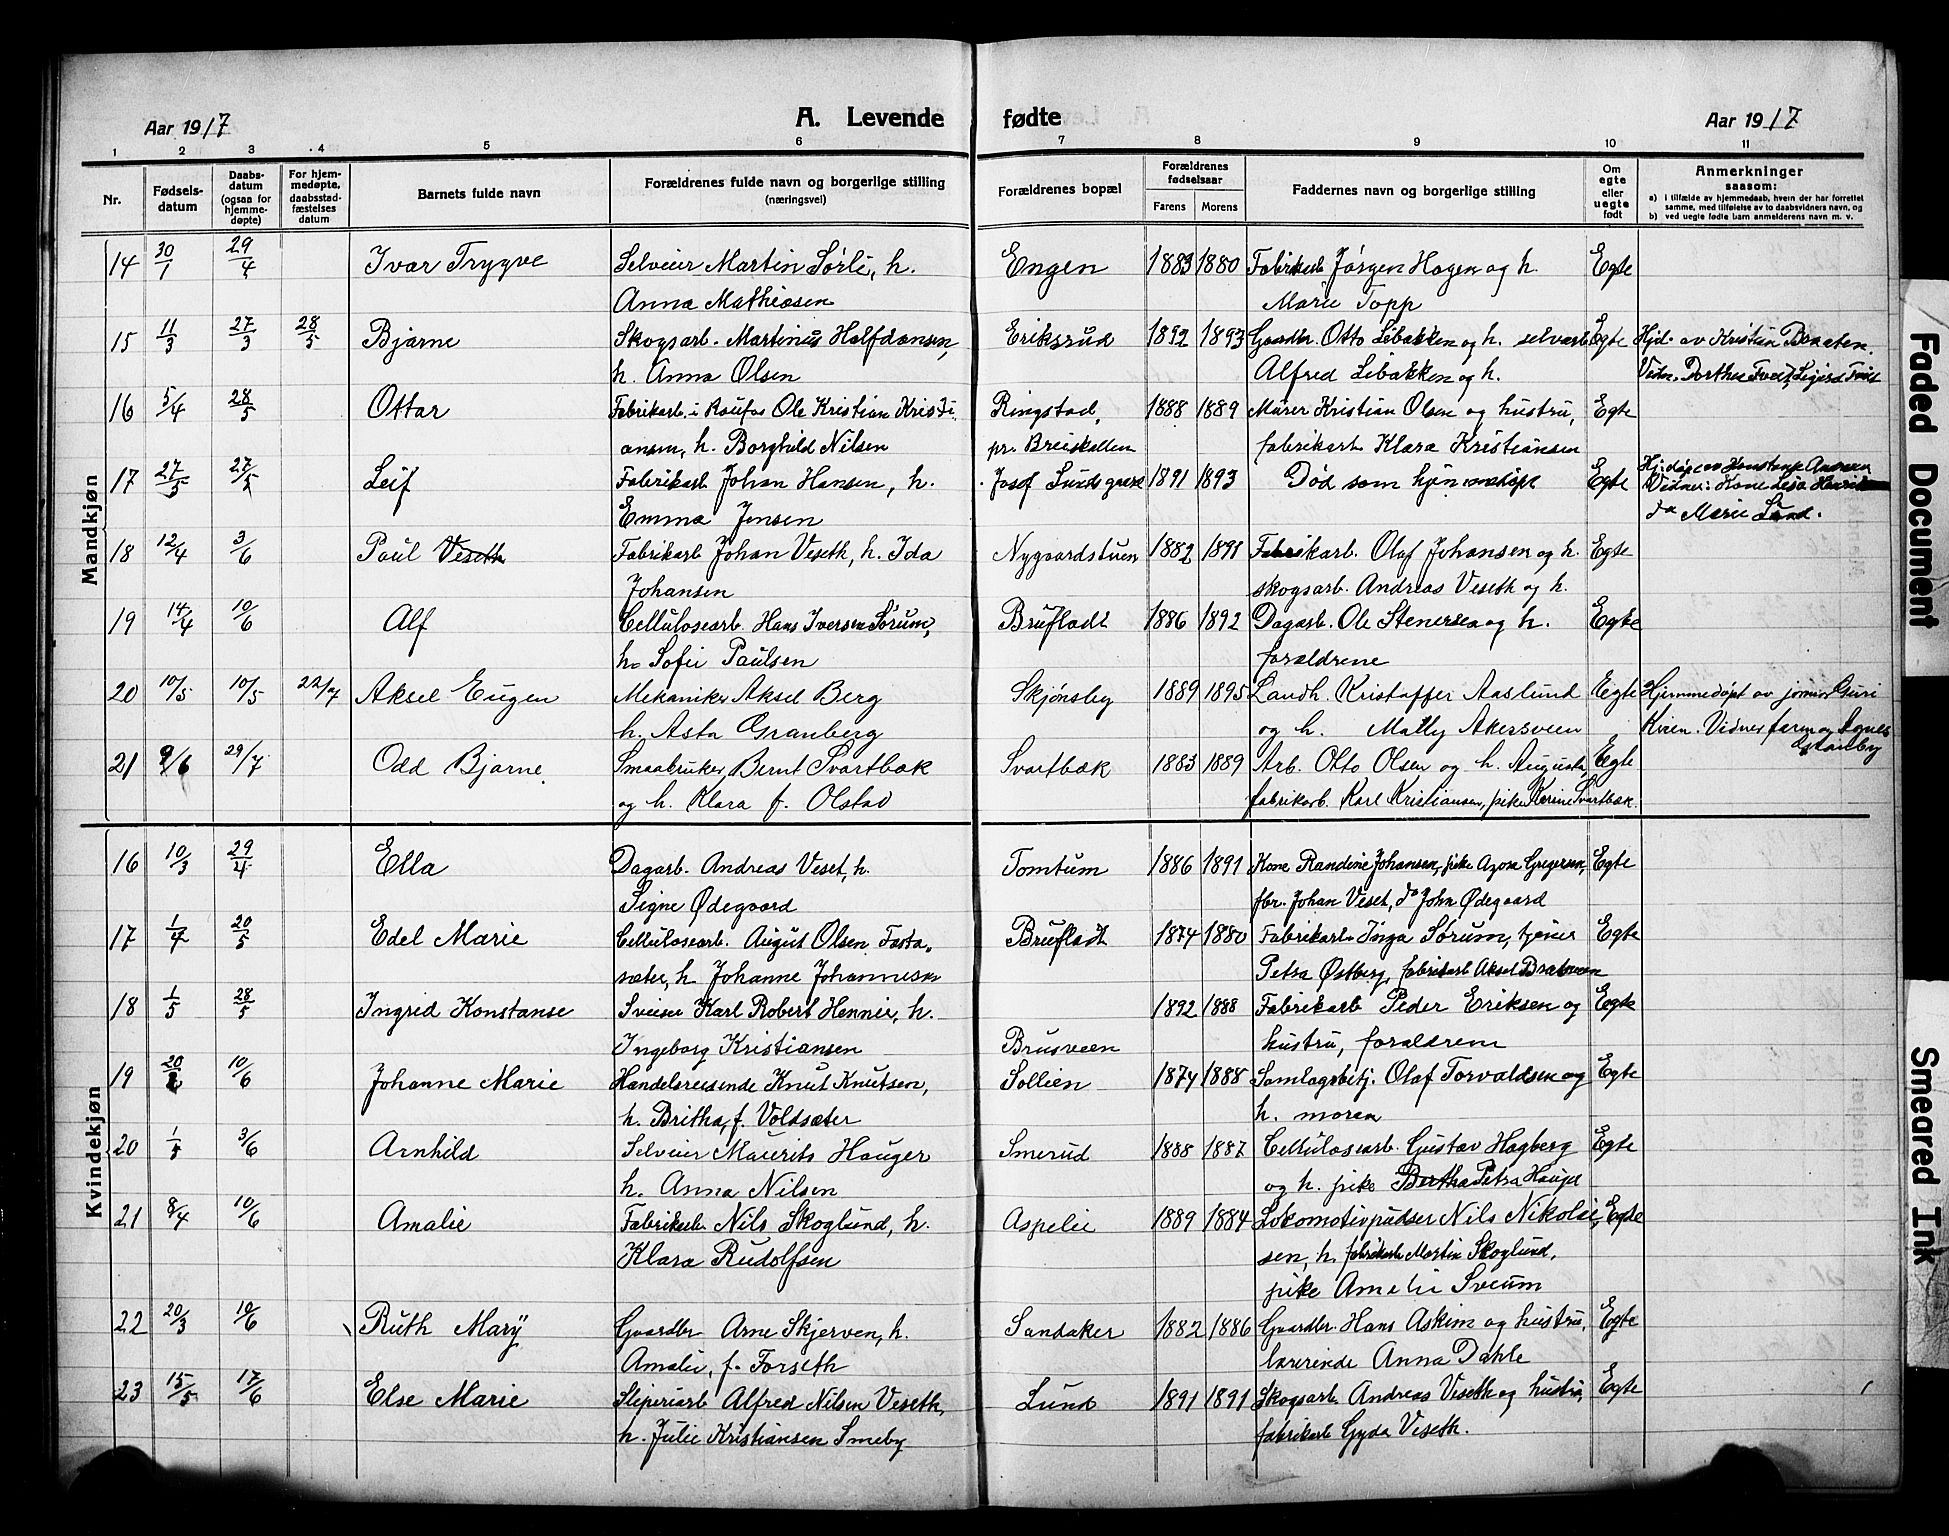 Aar 1917 A. Levende fødte Aar 1917
1 2 3 4 5 6 7 8 9 10 11
Nr. Fødsels-datum Daabs-datum (ogsaa for hjemme-døpte) For hjem-medøpte, daabsstad-fæstelses datum Barnets fulde navn Forældrenes fulde navn og borgerlige stilling (næringsvei) Forældrenes bopæl Forældrenes fødselsaar Farens Morens Faddernes navn og borgerlige stilling Om egte eller uegte født Anmerkninger saasom:
a) i tilfælde av hjemmedaab, hvem der har forrettet samme, med tilføielse av to daabsvidners navn, og
b) ved uegte fødte barn anmelderens navn m. v.
Mandkjøn
14 30/1 29/4 Ivar Trygve Selveier Martin Sørli, h. Engen 1883 1880 Fabrikarb Jørgen Hagen og h. Egte
Anna Mathiasen Marie Topp
15 11/3 27/3 28/5 Bjarne Skogsarb. Martinius Halfdansen, Eriksrud 1892 1893 Gaardbr. Otto Libakken og h. selvarb Egte Hjd. av Kristian Braaten.
h. Anna Olsen Alfred Libakken og h. Vidn. Dorthea
16 5/4 28/5 Ottar Fabrikarb. i Raufos Ole Kristian Kristi- Ringstad, 1888 1889 Murer Kristian Olsen og hustru, Egte
ansen, h. Borghild Nilsen pr. Breiskallen fabrikarb Klara Kristiansen
17 27/5 27/5 Leif Fabrikarb Johan Hansen, h. Josef Lundsgaard 1891 1893 Død som hjemmedøpt Egte Hj.døpt av Konstanse
Emma Jensen Vidner: Kone
do Marie Lund.
18 12/4 3/6 Paul Veseth Fabrikarb Johan Veseth, h. Ida Nygaardstuen 1882 1891 Fabrikarb. Olaf Johansen og h. Egte
Johansen skogsarb. Andreas Veseth og h.
19 14/4 10/6 Alf Cellulosearb. Hans Iversen Sørum, Brufladt 1886 1892 Dagarb. Ole Stenersen og h. Egte
h. Sofie Paulsen forældrene
20 10/5 10/5 22/7 Aksel Eugen Mekaniker Aksel Berg Skjønsby 1889 1895 Landh. Kristoffer Aaslund Egte Hjemmedøpt av jomor Guri
h. Asta Granberg og h. Mally Akersveen Kiren. Vidner faren og Agnes
21 9/6 29/7 Odd Bjarne. Smaabruker Bernt Svartbæk Svartbæk 1883 1889 Arb. Otto Olsen og h. Augusta, Egte
og h. Klara f. Olstad fabrikarb. Karl Kristiansen, pike Karine Svartbæk.
Kvindekjøn
16 10/3 29/4 Ella Dagarb. Andreas Veset, h. Tomtum 1886 1891 Kone Randine Johansen, pike Gregersen, Egte
Signe Ødegaard fbr. Johan Veset, do John Ødegaard
17 1/4 20/5 Edel Marie Cellulosearb. August Olsen Fasta- Brufladt 1874 1880 Fabrikarb Inga Sørum, tjener Egte
sæter, h. Johanne Johannesen Petra Østberg, fabrikarb Aksel Bratveen
18 1/5 28/5 Ingrid Konstanse Sveiser Karl Robert Hennie, h. 1892 1888 Fabrikarb Peder Eriksen og Egte
Ingeborg Kristiansen Brusveen hustru, forældrene
19 10/6 Johanne Marie Handelsreisende Knut Knutsen, Sollien 1874 1888 Samlagsbetj. Olaf Torvaldsen og Egte
h. Britha, f. Voldsæter h. moren
20 1/5 3/6 Arnhild Selveier Maurits Hauger Smerud 1888 1887 Cellulosearb. Gustav Hagberg Egte
h. Anna Nilsen og h. pike Bertha Petra Hauger
21 8/4 10/6 Amalie Fabrikarb Nils Skoglund, h. Aspelie 1889 1884 Lokomotivpudser Nils Nikolai- Egte
Klara Rudolfsen sen, h. fabrikarb Martin Skoglund,
pike Amalie Sveum
22 20/3 10/6 Ruth Mary Gaardbr Arne Skjerven, h. Sandaker 1882 1886 Gaardbr. Hans Askim og hustru, Egte
Amalie, f. Forseth lærerinde Anna Dahle
23 15/5 17/6 Else Marie Sliperiarb Alfred Nilsen Veseth, Lund 1891 1891 Skogsarb Andreas Veseth og hustru, Egte
h. Julie Kristiansen Smeby fabrikarb Gyda Veseth.
Faded Document
Smeared Ink